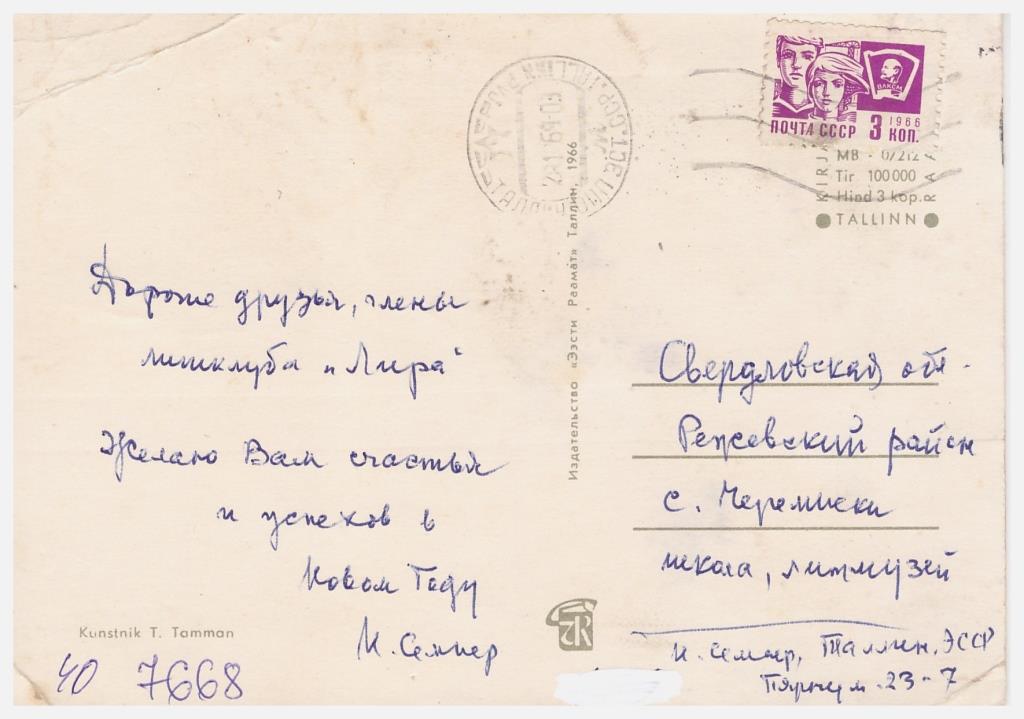 ВЛКСМ
1966
ПОЧТА СССР 3 КОП.
MB - 07212
Tir 100000
Hind 3 kop.
TALLINN
Издательство «Ээсти Раамат» Таллин, 1966
Дорогие друзья, члены
литклуба „Лира“
Желаю Вам счастья
и успехов в
Новом Году
И. Семпер
Свердловская обл.
Режевский район
с. Черемиски
школа, литмузей
И. Семпер, Таллин, ЭССР
23-7
Kunstnik T. Tamman
ER
40 7668